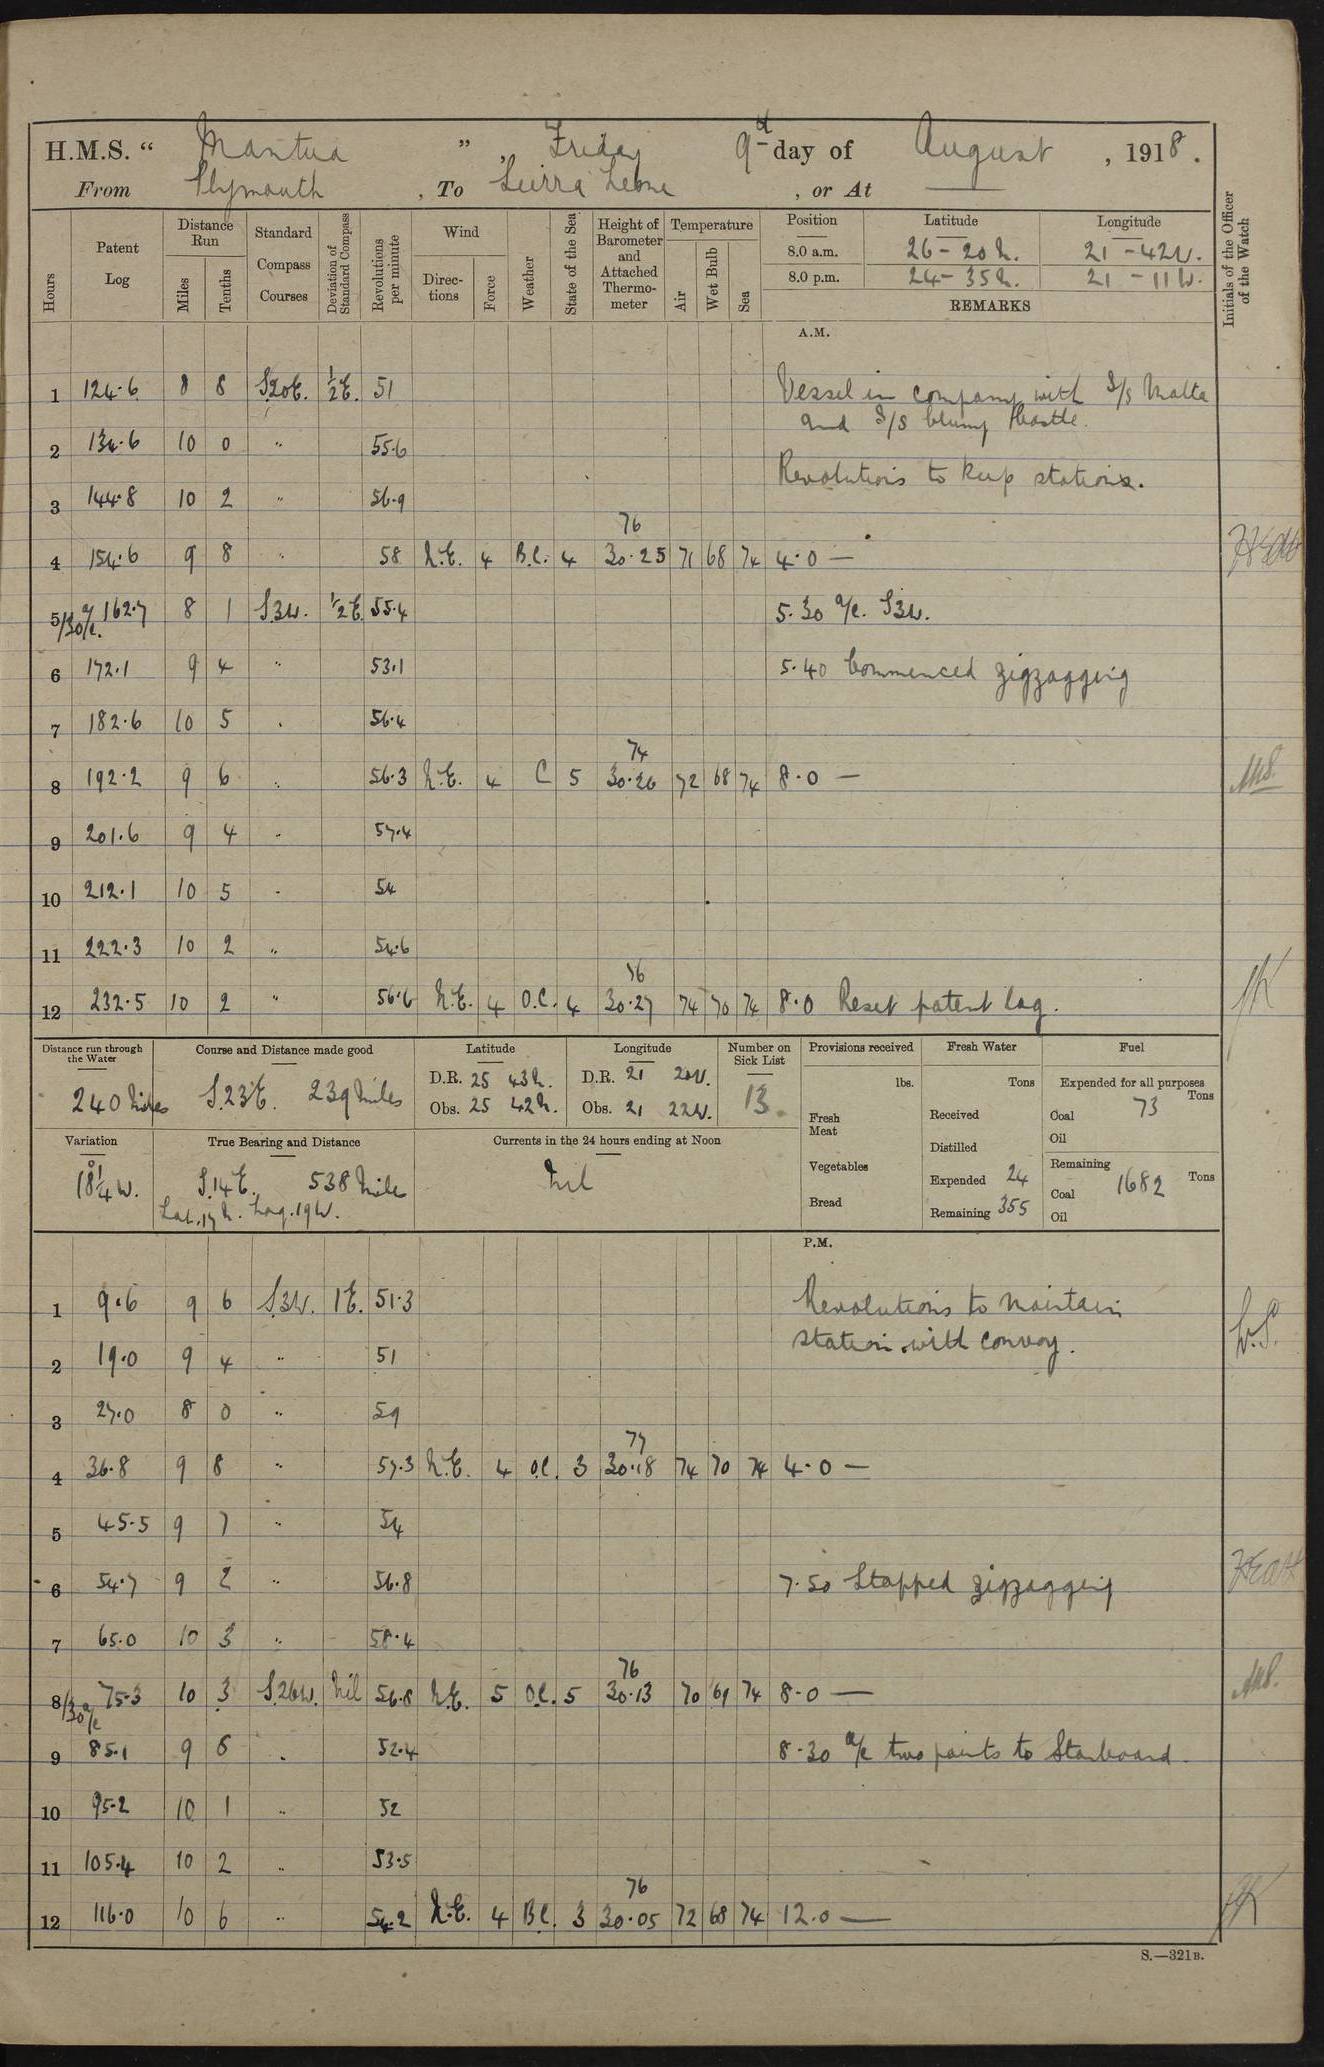 H.M.S. “ Mantua ” , Friday 9th day of August , 1918.
From Plymouth , To Sierra Leone , or At —
Hours Patent Log Distance Run Miles Tenths Standard Compass Courses Deviation of Standard Compass Revolutions per minute Wind Directions Force Weather State of the Sea Height of Barometer and Attached Thermometer Temperature Air Wet Bulb Sea Position Latitude Longitude Initials of the Officer of the Watch
8.0 a.m. 26 - 20 N. 21 - 42 W.
8.0 p.m. 24 - 35 N. 21 - 11 W.
REMARKS
A.M.
1 124.6 8 8 S20E. ½E. 51 Vessel in company with S/S Malta
and S/S
2 134.6 10 0 " 55.6
Revolutions to keep stations.
3 144.8 10 2 " 56.9
76
4 154.6 9 8 " 58 N.E. 4 B.C. 4 30.25 71 68 74 4.0 —
5/30 a/c. 162.7 8 1 S3W. ½E. 55.4 5.30 a/c. S3W.
6 172.1 9 4 " 53.1 5.40 Commenced zigzagging
7 182.6 10 5 " 56.4
74
8 192.2 9 6 " 56.3 N.E. 4 C 5 30.26 72 68 74 8.0 —
9 201.6 9 4 " 57.4
10 212.1 10 5 " 54
11 222.3 10 2 " 54.6
76
12 232.5 10 2 " 56.6 N.E. 4 O.C. 4 30.27 74 70 74 8.0 Reset patent log. JK
Distance run through the Water Course and Distance made good Latitude Longitude Number on Sick List Provisions received Fresh Water Fuel
240 Miles S.23°E. 239 Miles D.R. 25 43 N. D.R. 21 20 W. 13. lbs. Tons Expended for all purposes
Obs. 25 42 N. Obs. 21 22 W. Fresh Meat Received Coal 73 Tons
Oil
Variation True Bearing and Distance Currents in the 24 hours ending at Noon Distilled
18¼° W. S.14E. 538 Miles Nil Vegetables Expended 24 Remaining
Lat. 17 N. Long. 19 W. Coal 1682 Tons
Bread Remaining 355 Oil
P.M.
1 9.6 9 6 S3W. 1E. 51.3 Revolutions to maintain
station with convoy.
2 19.0 9 4 " 51
3 27.0 8 0 " 59
77
4 36.8 9 8 " 57.3 N.E. 4 O.C. 3 30.18 74 70 74 4.0 —
5 45.5 9 7 " 54
6 54.7 9 2 " 56.8 7.50 Stopped zigzagging
7 65.0 10 3 " 58.4
76
8/30 a/c 75.3 10 3 S.26W. Nil 56.8 N.E. 5 O.C. 5 30.13 70 69 74 8.0 —
9 85.1 9 6 " 52.4 8.30 a/c two points to Starboard.
10 95.2 10 1 " 52
11 105.4 10 2 " 53.5
76
12 116.0 10 6 " 54.2 N.E. 4 B.C. 3 30.05 72 68 74 12.0 — JK
S.—321B.